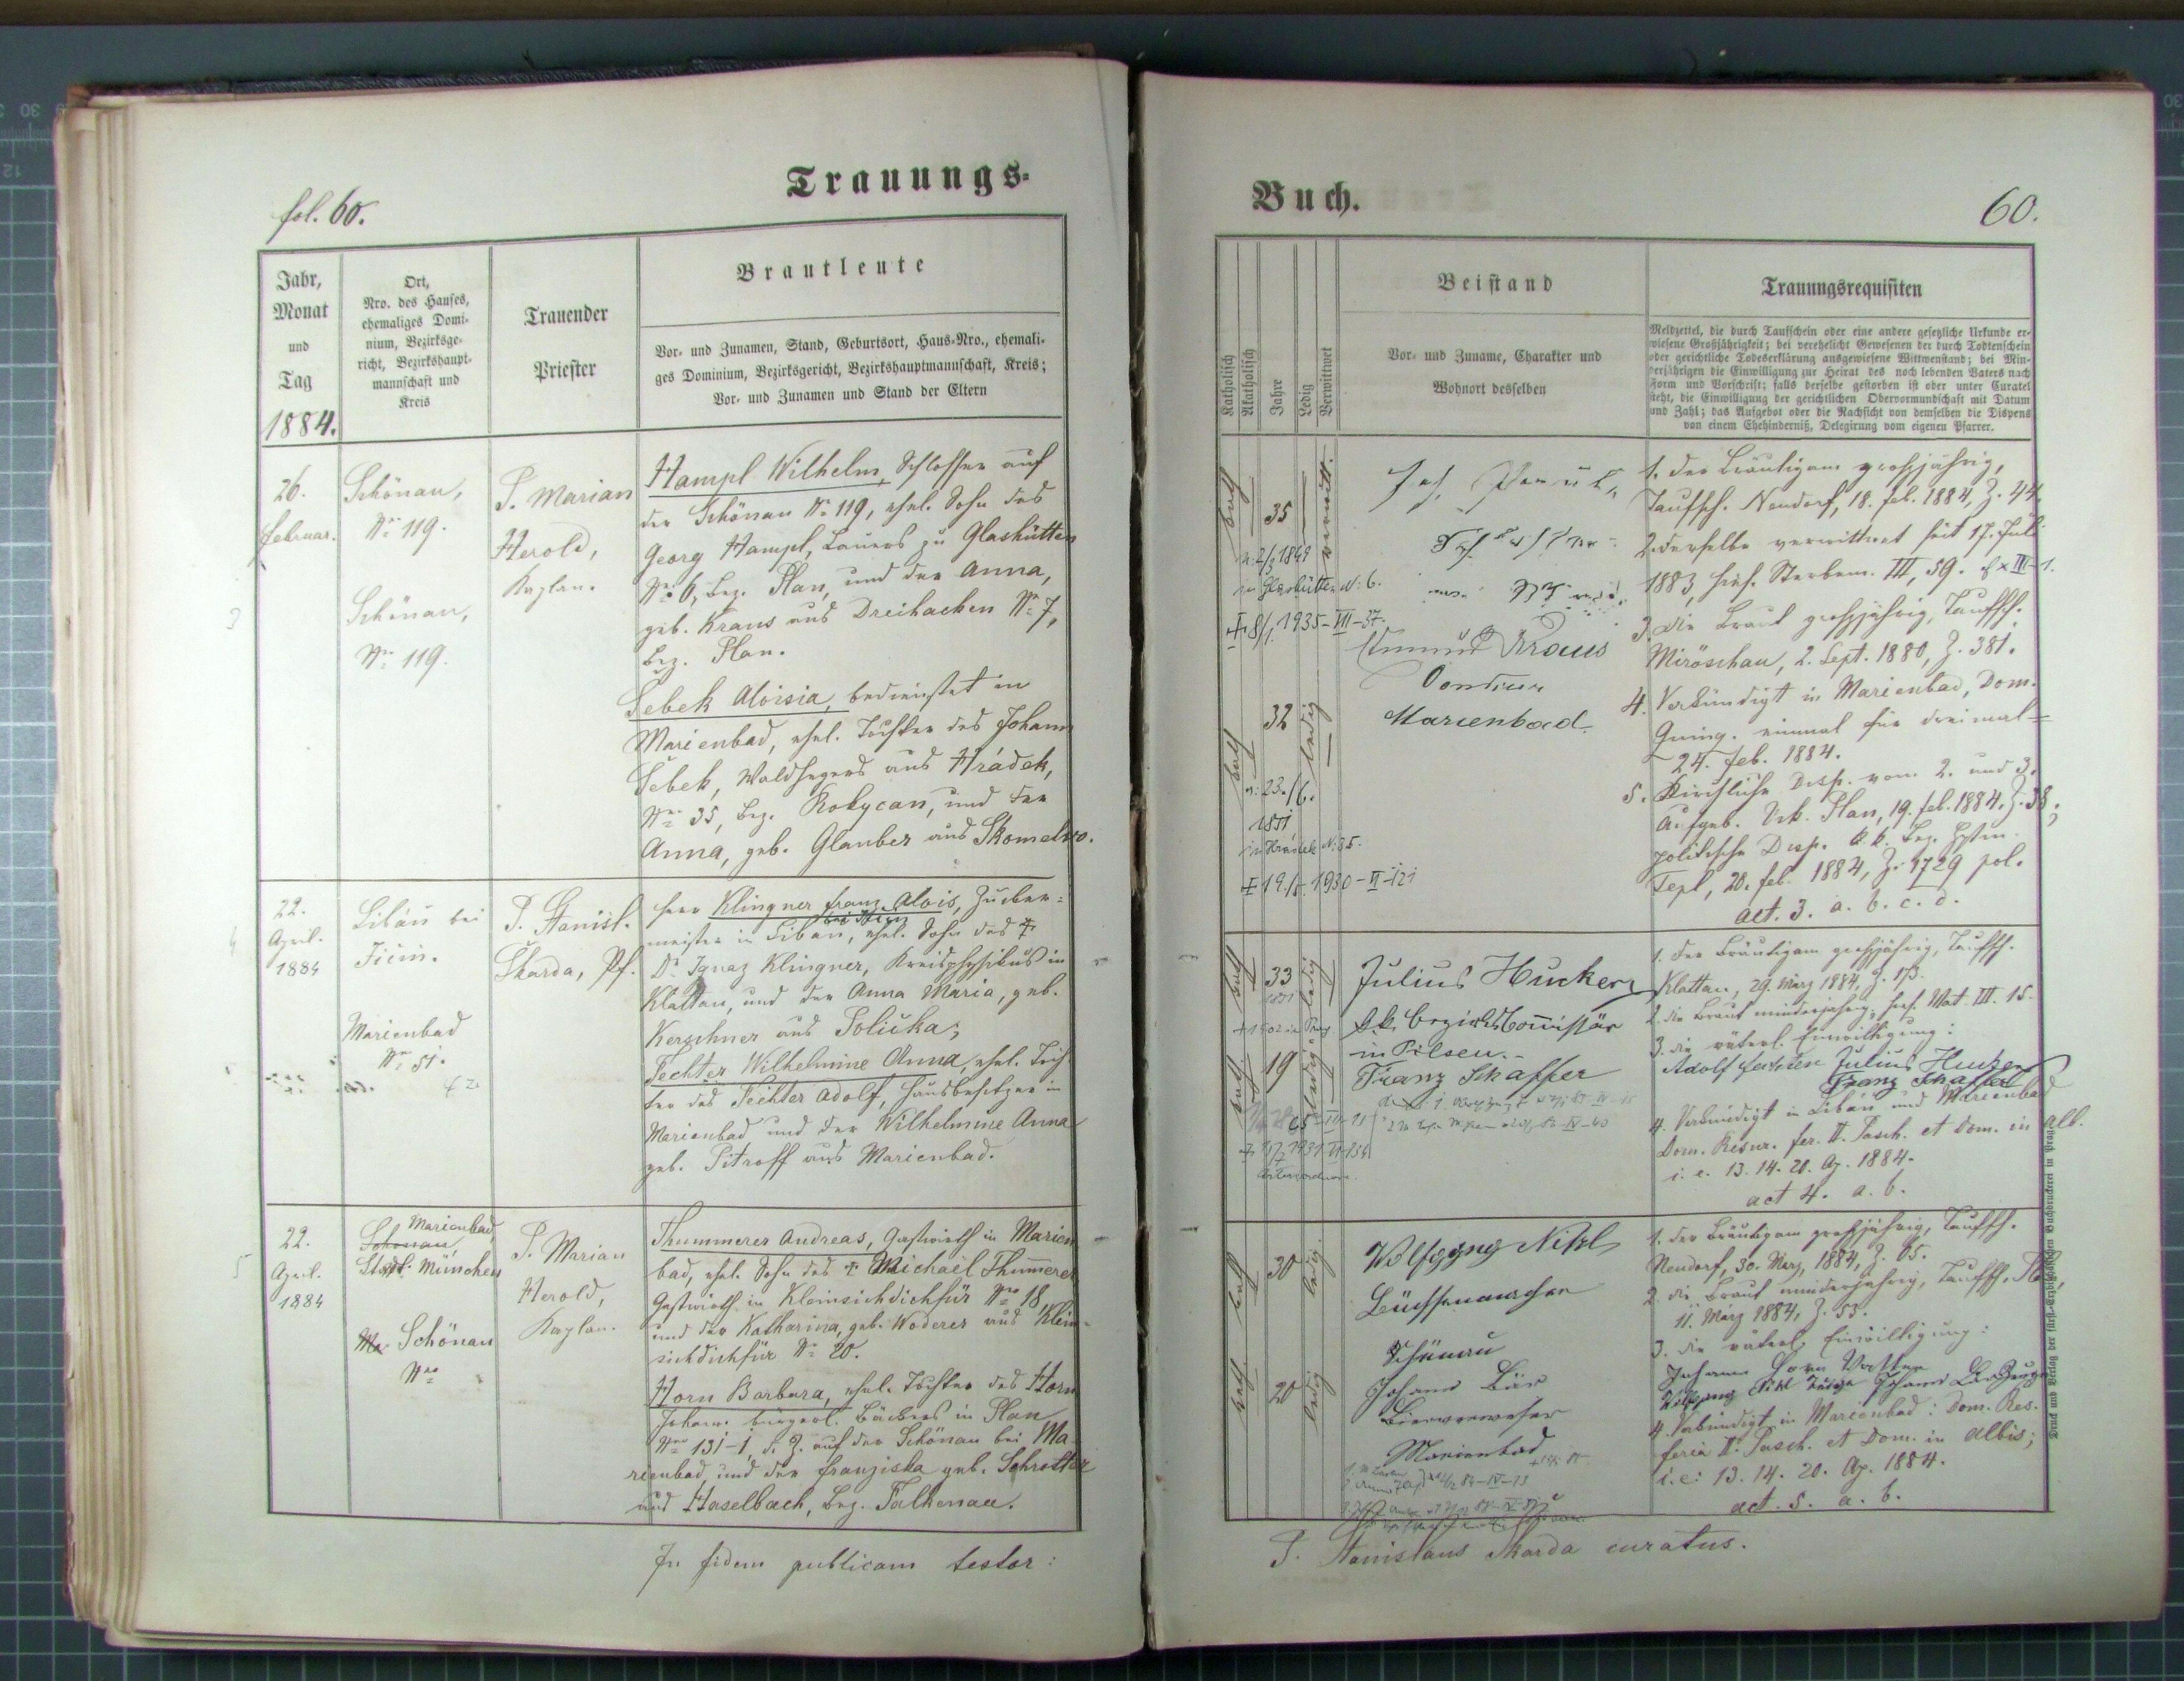 fol. 60.
Trauungs-
Jahr,
Monat
und
Tag
1884.
Ort,
Nro. des Hauses,
ehemaliges Domi-
nium, Bezirksge-
richt, Bezirkshaupt-
mannschaft und
Kreis
Trauender
Priester
Brautleute
Vor- und Zunamen, Stand, Geburtsort, Haus-Nro., ehemali-
ges Dominium, Bezirksgericht, Bezirkshauptmannschaft, Kreis;
Vor- und Zunamen und Stand der Eltern
26.
Februar.
Schönau,
No 119.
Schönau,
No 119.
P. Marian
Herold,
Kaplan.
Hampl Wilhelm, Schlosser auf
der Schönau No 119, ehel. Sohn des
Georg Hampl, Bauers zu Glashütten
No 6, Bez. Plan, und der Anna,
geb. Kraus aus Dreihacken No 7,
Bez. Plan.
Šebek Aloisia, bedienstet in
Marienbad, ehel. Tochter des Johann
Šebek, Waldhegers aus Hrádek,
No 35, Bez. Rokycan, und der
Anna, geb. Glauber aus Skomelno.
22.
April.
1884
Libáň bei
Jičín.
Marienbad
No 51.
P. Stanisl.
Škarda, Pf.
Herr Klingner Franz Alois, Zucker-
bei Jičín
meister in Libáň, ehel. Sohn des †
Dr Ignaz Klingner, Kreisphysikus in
Klattau, und der Anna Maria, geb.
Kerschner aus Polička;
Fechter Wilhelmine Anna, ehel. Toch-
ter des Fechter Adolf, Hausbesitzer in
Marienbad und der Wilhelmine Anna
geb. Pitroff aus Marienbad.
22.
April.
1884
Marienbad,
Schönau,
Stadt München
Ma Schönau
No
P. Marian
Herold,
Kaplan.
Thummerer Andreas, Gastwirth in Marien
bad, ehel. Sohn des † Michael Thummerer
Gastwirth in Kleinsichdichfür No 18,
und der Katharina, geb. Woderer aus Klein-
sichdichfür No 20.
Horn Barbara, ehel. Tochter des Horn
Johann bürgerl. Bäckers in Plan
No 131-1, d. Z. auf der Schönau bei Ma-
rienbad, und der Franziska geb. Schrotter
aus Haselbach, Bez. Falkenau.
In fidem publicam testor:
Buch.
60.
Katholisch
Akatholisch
Jahre
Ledig
Verwittwet
Beistand
Vor- und Zuname, Charakter und
Wohnort desselben
Trauungsrequisiten
Meldzettel, die durch Taufschein oder eine andere gesetzliche Urkunde er-
wiesene Großjährigkeit; bei verehelicht Gewesenen der durch Todtenschein
oder gerichtliche Todeserklärung ausgewiesene Wittwenstand; bei Min-
derjährigen die Einwilligung zur Heirat des noch lebenden Vaters nach
Form und Vorschrift; falls derselbe gestorben ist oder unter Curatel
steht, die Einwilligung der gerichtlichen Obervormundschaft mit Datum
und Zahl; das Aufgebot oder die Nachsicht von demselben die Dispens
von einem Ehehinderniß, Delegirung vom eigenen Pfarrer.
kath
35
verwitt.
n: 2/3 1849
in Glashütten N: 6.
† 8/1. 1935-VII-37.
kath
32
ledig
n: 23./6.
1851
in Hrádek N. 35.
† 19./ 1930-VI-121
Kraus
Marienbad
1. Der Bräutigam großjährig,
Taufsch. Neudorf, 18. Feb. 1884, Z. 44.
2. derselbe verwittwet seit 17. Juli
1883, hies. Sterbem. III, 59.
3. Die Braut großjährig, Taufsch.
Miröschau, 2. Sept. 1880, Z. 381.
4. Verkündigt in Marienbad, Dom.
Quinq. einmal für dreimal =
24. Feb. 1884.
5. Kirchliche Disp. vom 2. und 3.
Aufgeb. Vik. Plan, 19. Feb. 1884, Z. 38;
politische Disp. k. k. Bez. Hptm.
Tepl, 20. Feb. 1884, Z. 1729 pol.
act. 3. a. b. c. d.
kath
33
ledig
kath.
19
ledig
Julius Hucker
k.k. Bezirkscommissär
in Pilsen.
Franz Schaffer
1. Der Bräutigam großjährig, Taufsch.
Klattau, 29. März 1884, Z. 173.
2. die Braut minderjährig, hies. Mat. III. 15.
3. die väterl. Einwilligung:
Adolf Fechter Julius Hucker
Franz Schaffer
4. Verkündigt in Libáň und Marienbad
Dom. Resur. fer. II. Pasch. et Dom. in alb.
i. e. 13. 14. 20. Ap. 1884.
act 4. a. b.
kath
30
ledig
kath
20
ledig
Wolfgang Nikl
Büchsenmacher
Schönau
Johann Bär
Bierverweser
Marienbad
1. der Bräutigam großjährig, Taufsch.
Neudorf, 30. März, 1884, Z. 65.
2. die Braut minderjährig, Taufsch.
11. März 1884, Z. 53.
3. die väterl. Einwilligung:
Johann Horn Vatter
Wolfgang Nikl Zeuge Johann Bär Zeuge
4. Verkündigt in Marienbad: Dom. Res.
feria II. Pasch. et Dom. in albis;
i. e: 13. 14. 20. Ap. 1884.
act. 5. a. b.
P. Stanislaus Skarda curatus.
Druck und Verlag der fürst-Erzbischöflichen Buchdruckerei in Prag.